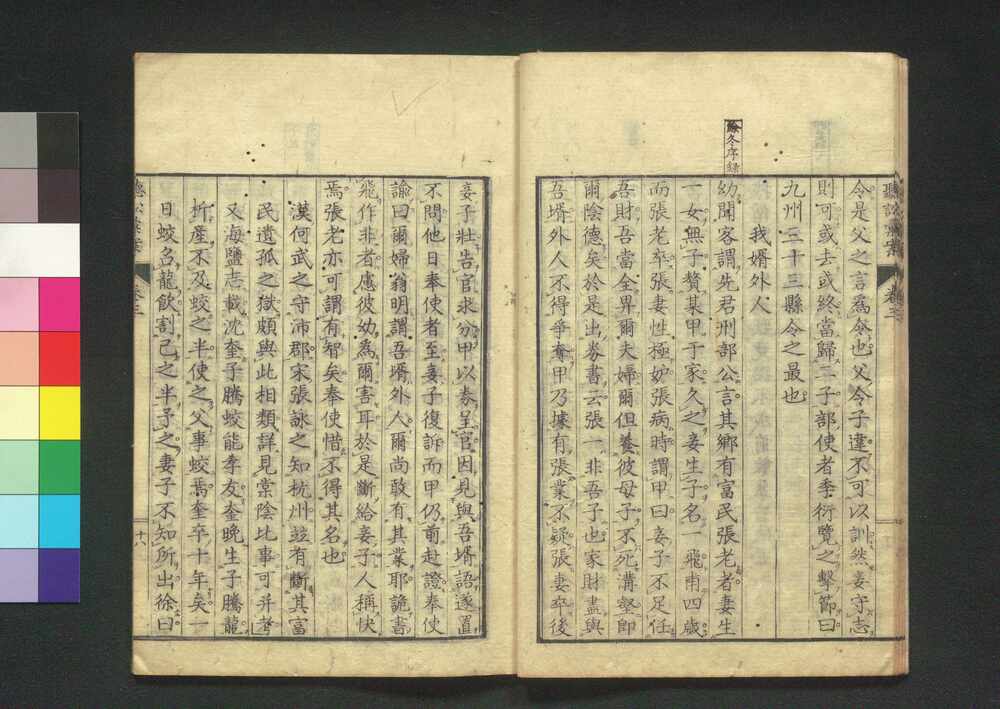 令是父之言爲命也父令子違不可以訓然妾守志
則可或去或終當歸二子部使者季衍覽之擊節曰
九州三十三縣令之最也
我婿外人
餘冬序録
幼聞客謂先君刑部公言其鄉有富民張老者妻生
一女無子贅某甲于家久之妾生子名一飛甫四歳
而張老卒張妻性極妬張病時謂甲曰妾子不足任
吾財吾當全畀爾夫婦爾但養彼母子不死溝壑即
爾陰德矣於是出劵書云張一非吾子也家財盡與
吾壻外人不得爭奪甲乃據有張業不疑張妻卒後
妾子壯告官求分甲以劵呈官因見與吾壻語遂置
不問他日奉使者至妾子復訴而甲仍前赴證奉使
諭曰爾婦翁明謂吾壻外人爾尚敢有其業耶詭書
飛作非者慮彼幼為爾害耳於是斷給妾子人稱快
焉張老亦可謂有智矣奉使惜不得其名也
漢何武之守沛郡宋張詠之知杭州竝有斷其富
民遺孤之獄頗與此相類詳見棠陰比事可并考
又海鹽志載沈奎子騰蛟能孝友奎晩生子騰龍
析産不及蛟之半使之父事蛟焉奎卒十年矣一
日蛟名龍飲割己之半予之妻子不知所出徐曰
卷三
十八